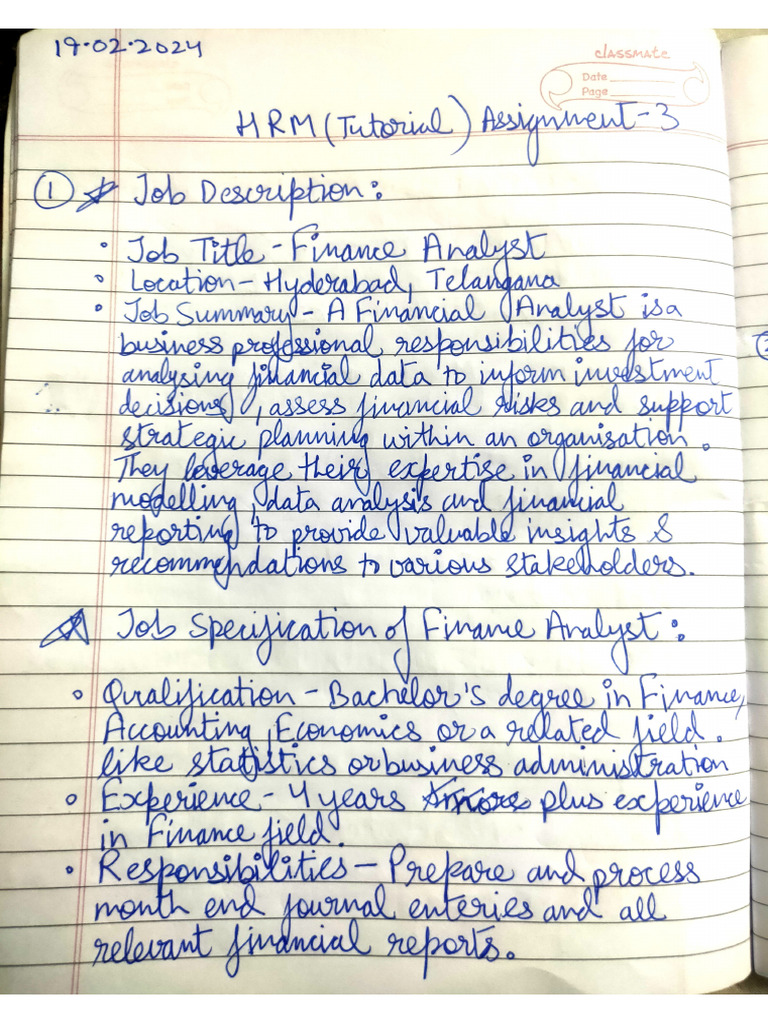 19.02.2024
classmate
Date
Page
HRM (Tutorial) Assignment-3
① ☆ Job Description:
• Job Title - Finance Analyst
• Location - Hyderabad, Telangana
• Job Summary - A Financial Analyst is a
business professional responsibilities for
analysing financial data to inform investment
decisions, assess financial risks and support
strategic planning within an organisation.
They leverage their expertise in financial
modelling, data analysis and financial
reporting to provide valuable insights &
recommendations to various stakeholders.
☆ Job Specification of Finance Analyst:
• Qualification - Bachelor's degree in Finance,
Accounting, Economics or a related field.
like statistics or business administration
• Experience - 4 years plus experience
in Finance field.
• Responsibilities - Prepare and process
month end journal enteries and all
relevant financial reports.